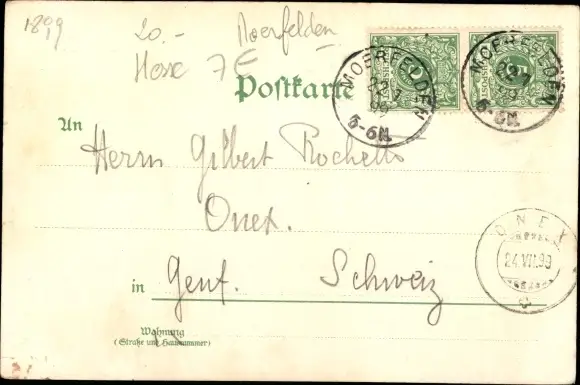 1899
20.- Moerfelden
Hesse 7E
Postkarte
MOERFELDEN
5-6N.
MOERFELDEN
An
Herrn Gilbert Rochette
Onex.
ONEX
24.VII.99
in Genf. Schweiz
Wohnung
(Straße und Hausnummer)